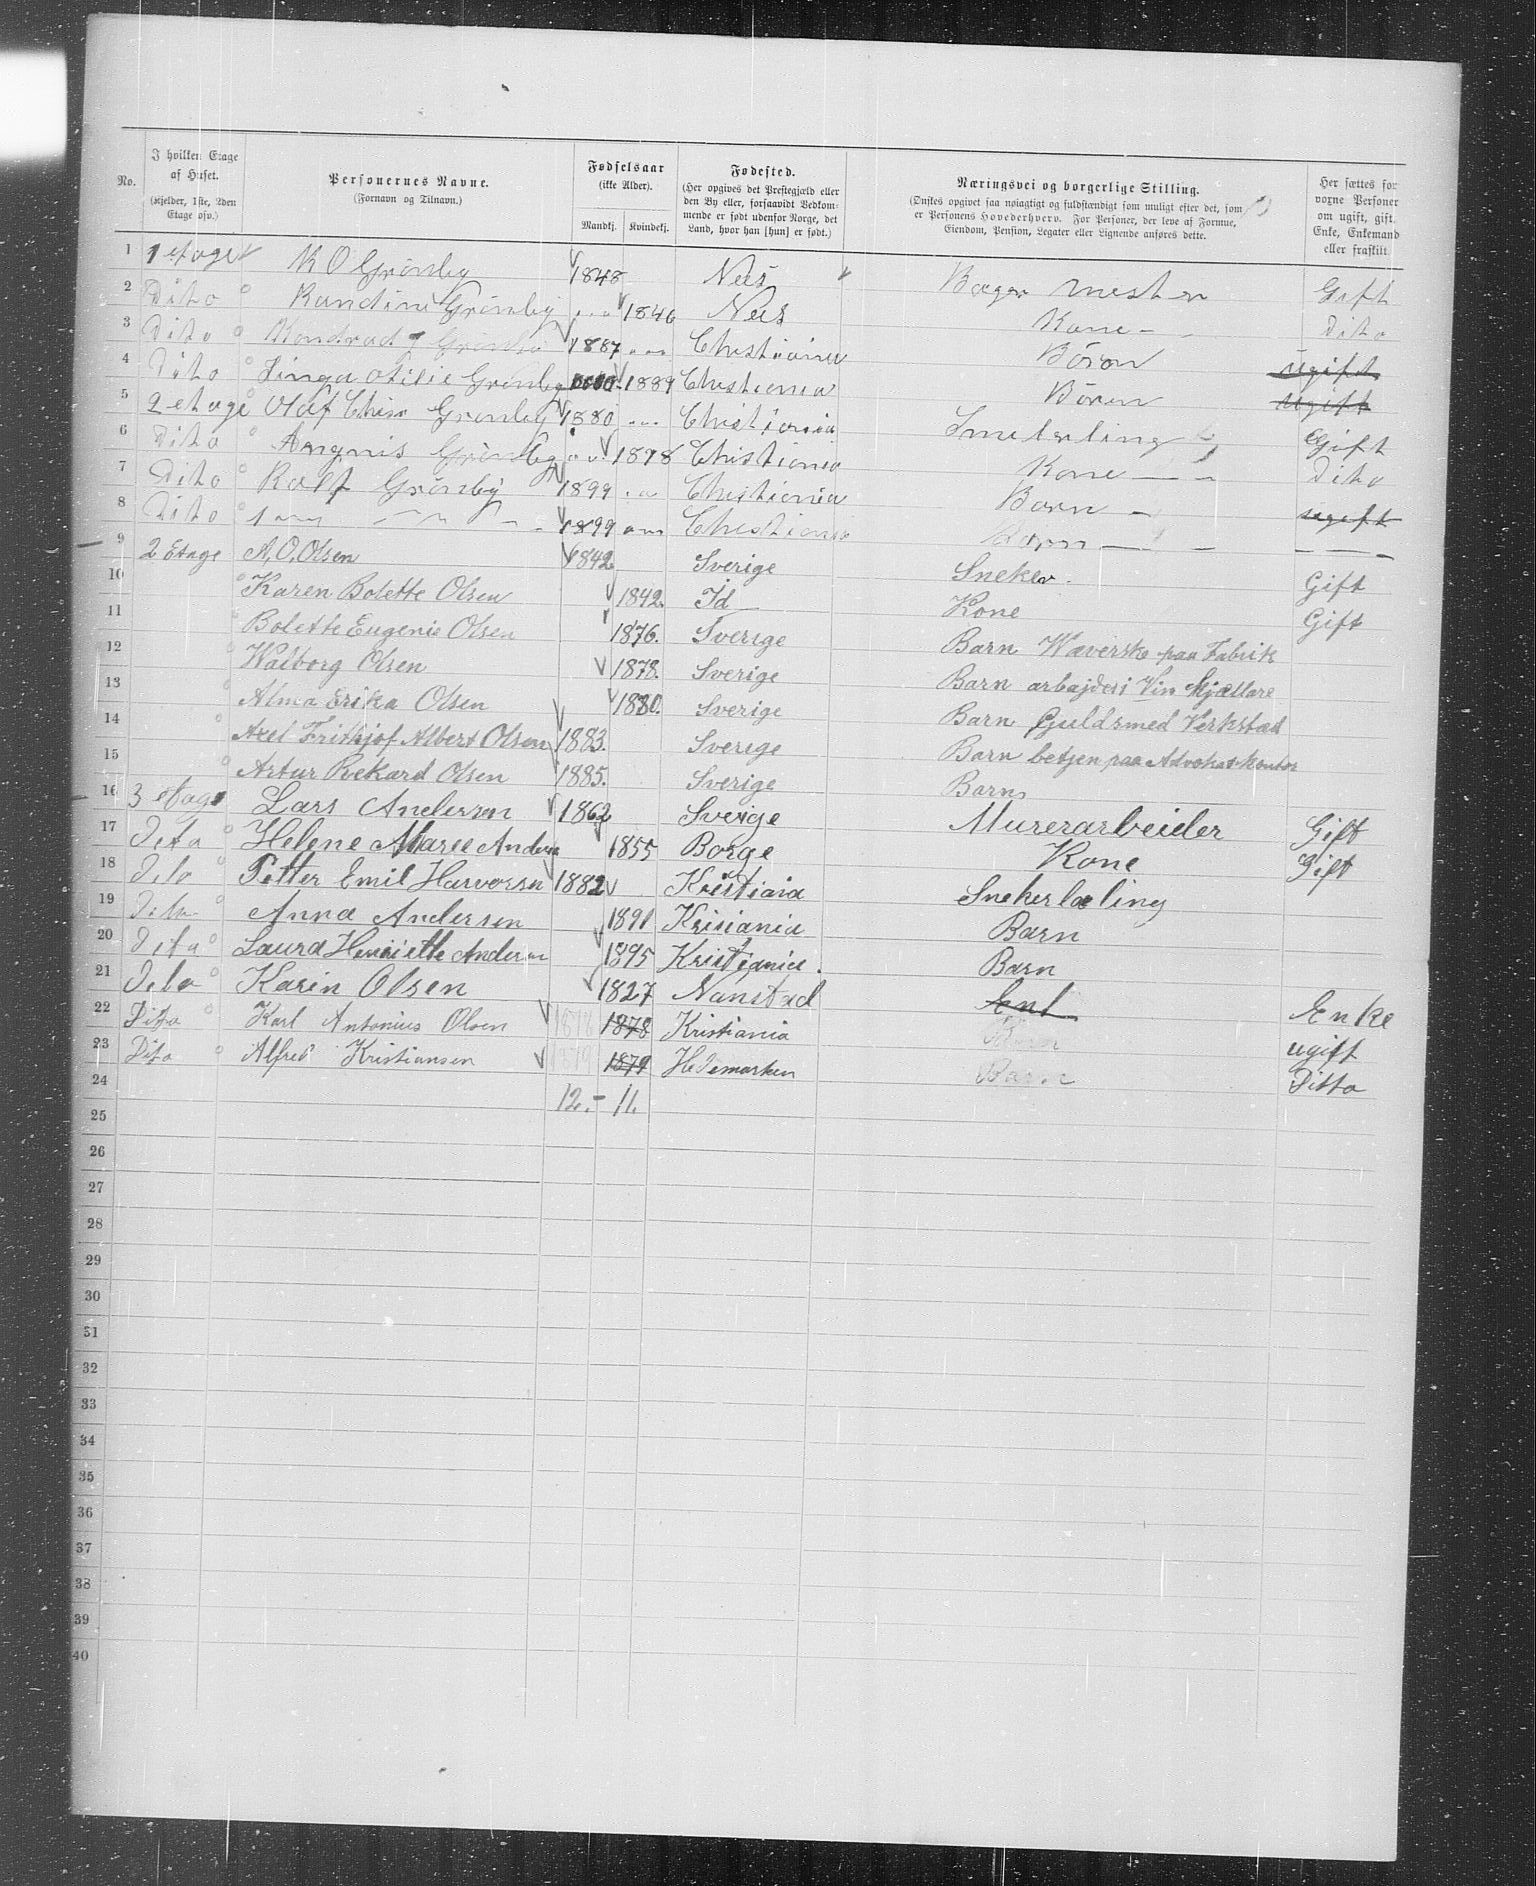 No.
I hvilken Etage af Huset.
(Kjelder, 1ste, 2den Etage osv.)
Personernes Navne.
(Fornavn og Tilnavn.)
Fødselsaar
(ikke Alder).
Mandkj. Kvindekj.
Fødested.
(Her opgives det Prestegjæld eller
den By eller, forsaavidt Vedkom-
mende er født udenfor Norge, det
Land, hvor han [hun] er født.)
Næringsvei og borgerlige Stilling.
(Ønskes opgivet saa nøiagtigt og fuldstændigt som muligt efter det, som
er Personens Hovederhverv. For Personer, der leve af Formue,
Eiendom, Pension, Legater eller Lignende anføres dette.
Her sættes for
voxne Personer
om ugift, gift,
Enke, Enkemand
eller fraskilt.
1 1 etage K O Grönby 1848 Nes Bager mester Gift
2 Dito Randine Grönby 1846 Nes Kone Dito
3 Dito Kondrad Grönby 1887 Christiania Bören ugift
4 Dito Otilie Grönby 1889 Christiania Bören ugift
5 2 etage Olaf Chisr Grönby 1880 Christiania Gift
6 Dito Angnis Grönby 1878 Christiania Kone Dito
7 Dito Ralf Grönby 1899 Christiania Barn ugift
8 Dito 1899 Christiania
9 2 Etage A. O. Olsen 1842 Sverige Sneker. Gift
10 Karen Bolette Olsen 1842. Id Kone Gift
11 Bolette Eugenie Olsen 1876. Sverige Barn Wæverske paa Fabrik
12 Walborg Olsen 1878. Sverige Barn arbajder i Vin Kjællare
13 Alma Erika Olsen 1880. Sverige Barn Guldsmed Verkstad
14 Axel Frithjof Albert Olsen 1883. Sverige Barn betjen paa Advokatkontor
15 Artur Rekard Olsen 1885. Sverige Barn
16 3 etage Lars Andersen 1862 Sverige Murerarbeider Gift
17 Dito Helene Maree Andersen 1855 Borge Kone Gift
18 Dito Petter Emil Harvorsen 1882 Kristiania Snekerlæling
19 Dito Anna Andersen 1891 Krisiania Barn
20 Dito Laura Henriette Andersen 1895 Kristiania Barn
21 Dito Karin Olsen 1827 Nanstad Enke
22 Dito Karl Antonius Olsen 1878 1878 Kristiania Barn ugift
23 Dito Alfred Kristiansen 1879 1879 Hedemarken Barn Ditto
24 12.- 11.
25
26
27
28
29
30
31
32
33
34
35
36
37
38
39
40